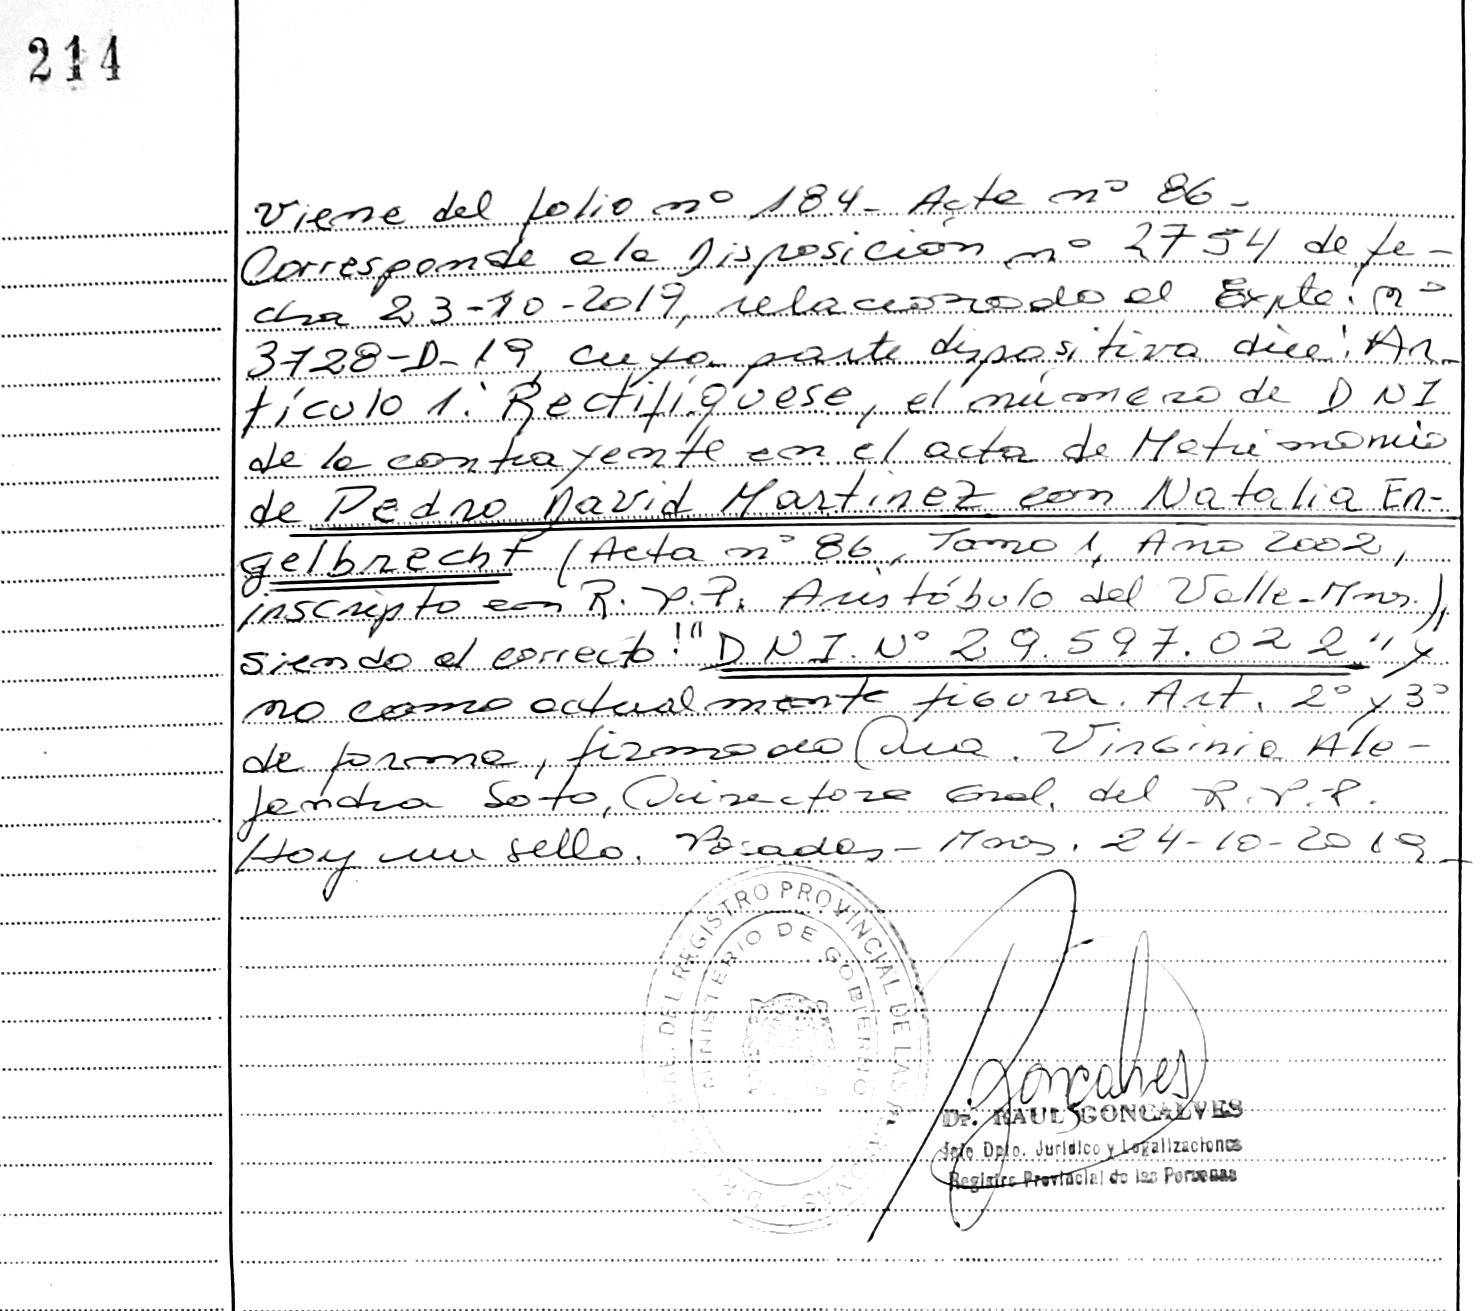 214
Viene del folio nº 184- Acta nº 86-
Corresponde a la Disposición nº 2754 de fe-
cha 23-10-2019, relacionado al Expte: nº
3728-D-19, cuya parte dispositiva dice: Ar-
tículo 1: Rectifíquese, el número de DNI
de la contrayente en el acta de Matrimonio
de Pedro David Martinez con Natalia En-
gelbrecht (Acta nº 86, Tomo 1, Año 2002,
inscripto en R.P.P. Aristóbulo del Valle-Mnes.),
siendo el correcto: "DNI. Nº 29.597.022" y
no como actualmente figura. Art. 2º y 3º
de forma, firmado Dra. Virginia Ale-
jandra Soto, Directora Gral. del R.P.P.
Hay un sello. Posadas- Mnes. 24-10-2019-
DEL REGISTRO PROVINCIAL DE LAS
MINISTERIO DE GOBIERNO
Goncalves
Dr. RAUL GONCALVES
Jefe Dpto. Jurídico y Legalizaciones
Registro Provincial de las Personas